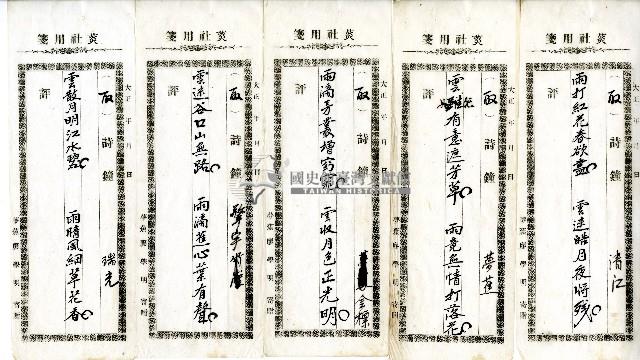 箋用社菼
大正 年 月 日
(取) 詩鐘 清江
雨打紅花春欲盡 雲迷皓月夜將殘
評
箋用社菼
大正 年 月 日
(取) 詩鐘 夢蓮
雲 有意遮芳草 雨竟無情打落花
評
箋用社菼
大正 年 月 日
(取) 詩鐘
雨滴 叢增 雲收月色正光明
評
箋用社菼
大正 年 月 日
(取) 詩鐘
雲迷谷口山無路 雨滴蕉心葉有聲
評
箋用社菼
大正 年 月 日
(取) 詩鐘 瑞光
雲散月明江水碧 雨晴風細草花香
評
國史館臺灣文獻館
TAIWAN HISTORICA